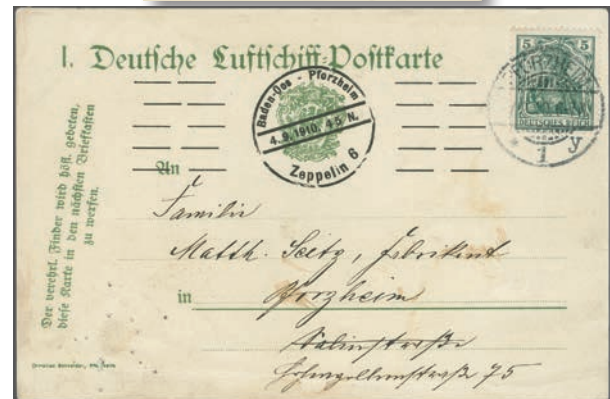 I. Deutsche Luftschiff-Postkarte
Der verehrl. Finder wird höfl. gebeten,
diese Karte in den nächsten Briefkasten
zu werfen.
Baden-Oos - Pforzheim
4.9.1910. 4-5 N.
Zeppelin 6
5 5
DEUTSCHES REICH
PFORZHEIM
* 1 y
An
Familie
Matth. Seitz, Fabrikant
in Pforzheim
Salinstraße
Hohenzollernstraße 75